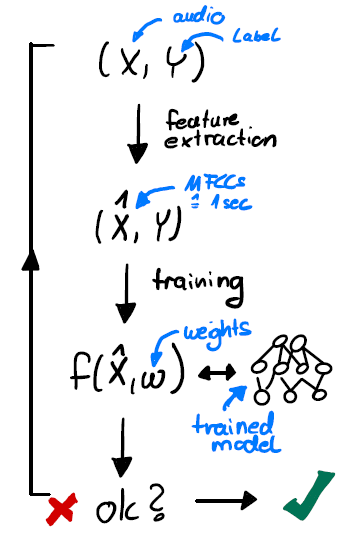 audio
Label
(X, Y)
feature
extraction
MFCCs
≙ 1sec
(X̂, Y)
training
weights
f(X̂, ω)
trained
model
ok?